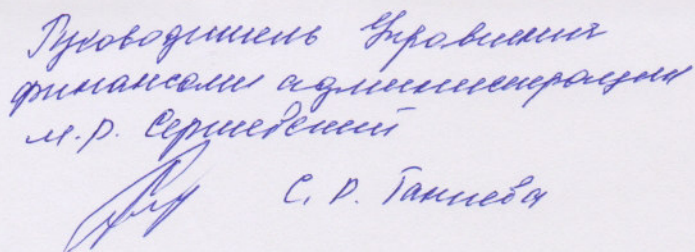 Руководитель Управления
финансами администрации
м.р. Сергиевский
С. Р. Ганиева